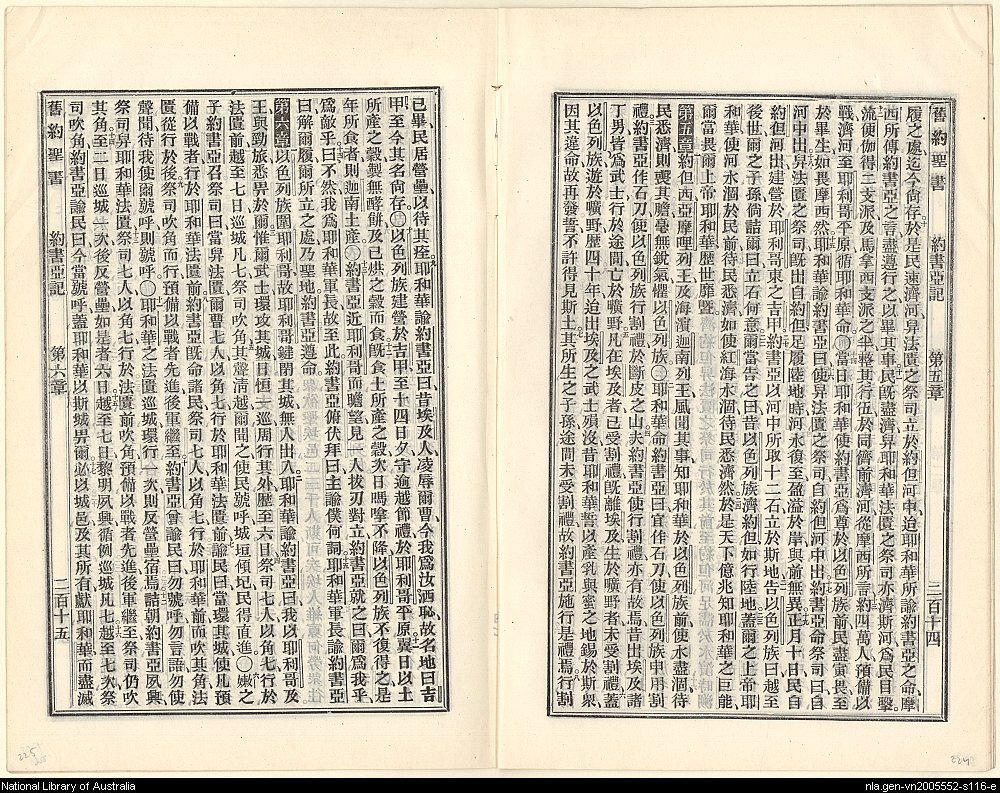 舊約聖書 約書亞記 第五章 二百十四
履之處迄今尙存於是民速濟河舁法匱之祭司立於約但河中迨耶和華所諭約書亞之命摩
西所傳約書亞之言盡遵行之以畢其事民旣盡濟舁耶和華法匱之祭司亦濟斯河爲民目擊
流便伽得二支派及馬拿西支派之半整其行伍於同儕前濟河從摩西所言約四萬人預備以
戰濟河至耶利哥平原循耶和華命當日耶和華使約書亞爲尊於以色列族前民盡寅畏至
於畢生如畏摩西然耶和華諭約書亞曰使舁法匱之祭司自約但河中出約書亞命祭司曰自
河中出舁法匱之祭司旣出自約但足履陸地時河水復至盈溢於岸與前無異正月十日民自
約但河出建營於耶利哥東之吉甲約書亞以河中所取十二石立於斯地告以色列族曰越至
後世爾之子孫倘詰爾曰立石何意爾當告之曰昔以色列族濟約但如行陸地蓋爾之上帝耶
和華使河水涸於民前待民悉濟如使紅海水涸待民悉濟然於是天下億兆知耶和華之巨能
爾當畏爾上帝耶和華歷世靡曁
第五章約但西亞摩哩列王及海濱迦南列王風聞其事知耶和華於以色列族前使水盡涸待
民悉濟則喪其膽毫無銳氣懼以色列族耶和華命約書亞曰宜作石刀使以色列族中用割
禮約書亞作石刀使以色列族循割禮於斷皮之山夫約書亞使行割禮亦有故焉昔出埃及諸
丁男皆爲武士行於途間亡於曠野凡在埃及者已受割禮旣離埃及生於曠野者未受割禮蓋
以色列族遊於曠野歷四十年迨出埃及之武士殞沒昔耶和華誓以產乳與蜜之地錫於斯衆
因其違命故再發誓不許得見斯土其所生之子孫途間未受割禮故約書亞施行是禮焉行割
舊約聖書 約書亞記 第六章 二百十五
已畢民居營壘以待其痊耶和華諭約書亞曰昔埃及人凌辱爾曹今我爲汝洒恥故名地曰吉
甲至今其名尙存以色列族建營於吉甲至十四日夕守逾越節禮於耶利哥平原翼日以土
所產之穀製無酵餅及已烘之穀而食旣食土所產之穀次日嗎嗱不降以色列族不復得之是
年所食者則迦南土產約書亞近耶利哥而瞻望見一人拔刃對立約書亞就之曰爾爲我乎
爲敵乎曰不然我爲耶和華軍長故至此約書亞俯伏拜曰主諭僕何詞耶和華軍長諭約書亞
曰解爾履爾所立之處乃聖地約書亞遵命
第六章以色列族圍耶利哥故耶利哥鍵閉其城無人出入耶和華諭約書亞曰我以耶利哥及
王與勁旅悉畀於爾惟爾武士環攻其城日恒一巡周行其外歷至六日祭司七人以角七行於
法匱前越至七日巡城凡七祭司吹角其聲淸越爾聞之使民號呼城垣傾圮民得直進嫩之
子約書亞召祭司曰當舁法匱爾曹七人以角七行於耶和華法匱前諭民曰當環其城使凡預
備以戰者行於耶和華法匱前約書亞旣命諸民祭司七人以角七行於耶和華前而吹其角法
匱從行於後祭司吹角而行預備以戰者先進後軍繼至約書亞曾諭民曰勿號呼勿言語勿使
聲聞待我使爾號呼則號呼耶和華之法匱巡城環行一次則反營壘宿焉詰朝約書亞夙興
祭司舁耶和華法匱祭司七人以角七行於法匱前吹角預備以戰者先進後軍繼至祭司仍吹
其角至二日巡城一次後反營壘如是者六日越至七日黎明夙興循例巡城凡七越至七次祭
司吹角約書亞諭民曰今當號呼蓋耶和華以斯城畀爾必以城邑及其所有獻耶和華而盡滅
225
224
National Library of Australia
nla.gen-vn2005552-s116-e